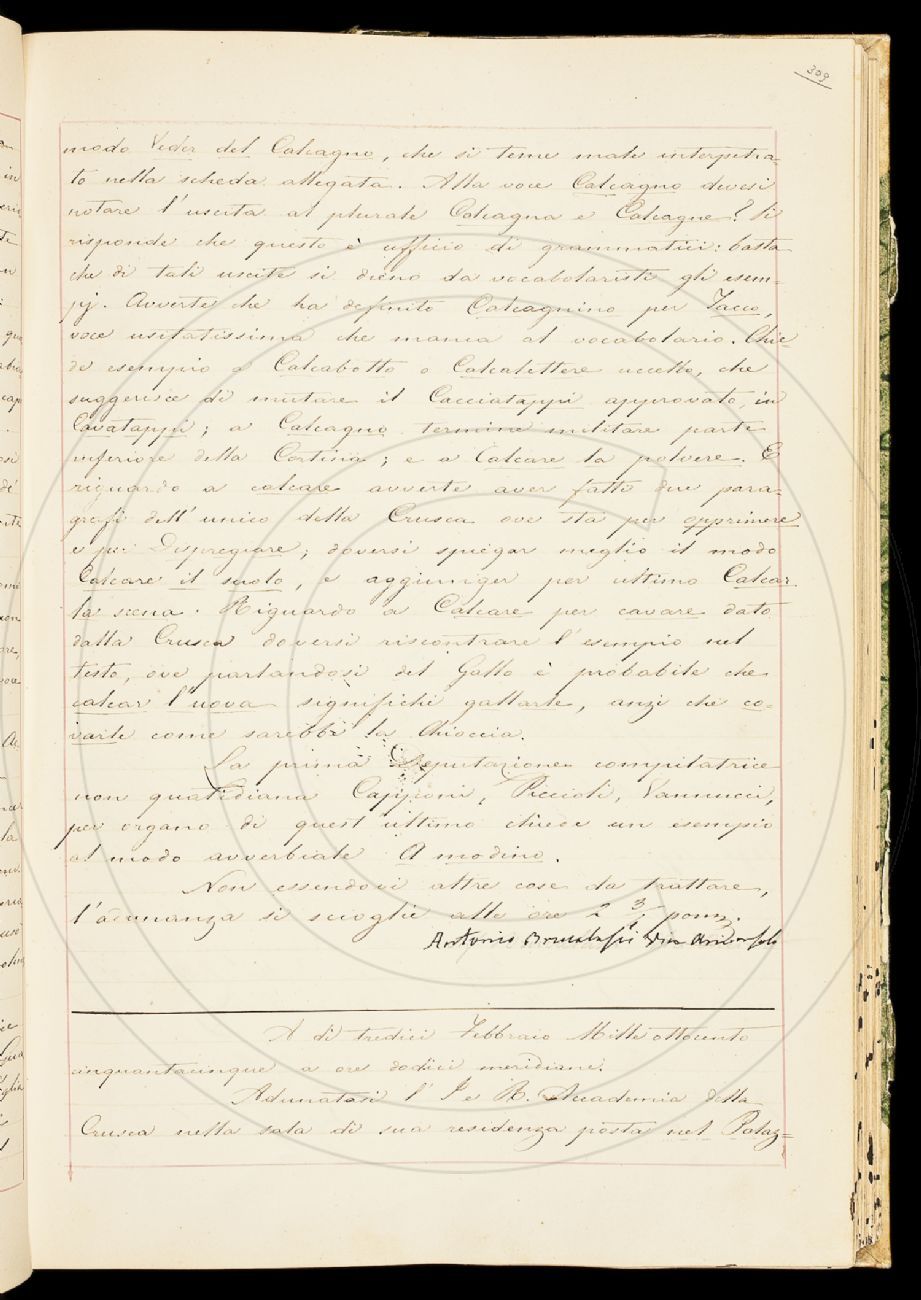 309
modo Veder del Calcagno, che si teme male interpetra=
to nella scheda allegata. Alla voce Calcagno devesi
notare l'uscita al plurale Calcagna e Calcagne? Si
risponde che questo è ufficio di grammatici: basta
che di tali uscite si dieno da vocabolaristi gli esem=
pj. Avverte che ha definito Calcagnino per Tacco,
voce usitatissima che manca al vocabolario. Chie=
de esempio a Calcabotto o Calcalettere uccello, che
suggerisce di mutare il Cacciatappi approvato, in
Cavatappi; a Calcagno termine militare parte
inferiore della Cortina; e a Calcare la polvere. E
riguardo a calcare avverte aver fatti due para=
grafi dell'unico della Crusca ove sta per opprimere
e per Dispregiare; doversi spiegar meglio il modo
Calcare il suolo, e aggiunger per ultimo Calcar
la scena. Riguardo a Calcare per cavare dato
dalla Crusca doversi riscontrare l'esempio nel
testo, ove parlandosi del Gallo è probabile che
calcar l'uova significhi gallarle, anzi che co=
varle come sarebbe la Chioccia.
La prima Deputazione compilatrice
non quotidiana Capponi, Piccioli, Vannucci,
per organo di quest'ultimo chiede un esempio
al modo avverbiale A modino.
Non essendovi altre cose da trattare,
l'adunanza si scioglie alle ore 2 3/4 pom.
Antonio Brucalassi
A dì tredici Febbraio Milleottocento
cinquantacinque a ore dodici meridiane.
Adunatasi l'I. e R. Accademia della
Crusca nella sala di sua residenza posta nel Palaz=